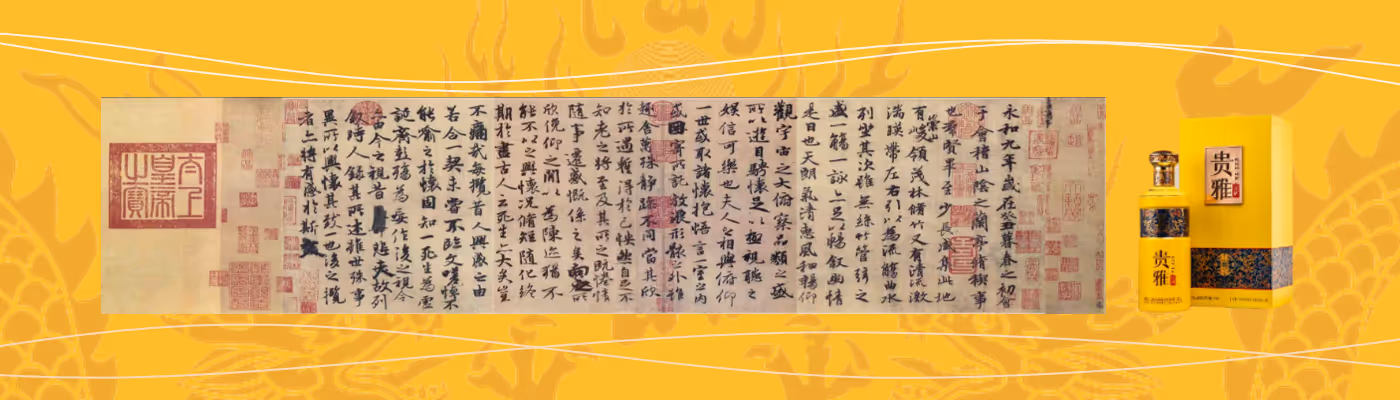 永和九年歲在癸丑暮春之初會
于會稽山陰之蘭亭脩稧事
也羣賢畢至少長咸集此地
有崇山峻領茂林脩竹又有清流激
湍暎帶左右引以為流觴曲水
列坐其次雖無絲竹管絃之
盛一觴一詠亦足以暢叙幽情
是日也天朗氣清惠風和暢仰
觀宇宙之大俯察品類之盛
所以遊目騁懷足以極視聽之
娛信可樂也夫人之相與俯仰
一世或取諸懷抱悟言一室之內
或因寄所託放浪形骸之外雖
趣舍萬殊靜躁不同當其欣
於所遇暫得於己怏然自足不
知老之將至及其所之既惓情
隨事遷感慨係之矣向之所
欣俛仰之閒以為陳迹猶不
能不以之興懷況脩短隨化終
期於盡古人云死生亦大矣豈
不痛哉每攬昔人興感之由
若合一契未嘗不臨文嗟悼不
能喻之於懷固知一死生為虛
誕齊彭殤為妄作後之視今
亦由今之視昔悲夫故列
叙時人錄其所述雖世殊事
異所以興懷其致一也後之攬
者亦將有感於斯文
太上
皇帝
之寶
贵雅
贵雅